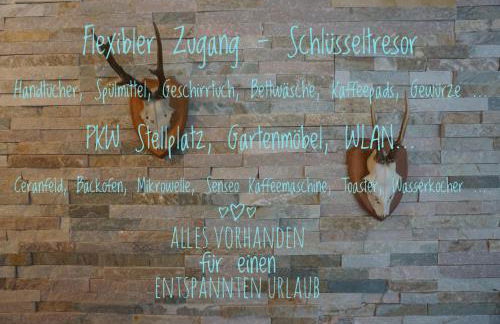 Flexibler Zugang - Schlüsseltresor
Handtücher, Spülmittel, Geschirrtuch, Bettwäsche, Kaffeepads, Gewürze ...
PKW Stellplatz, Gartenmöbel, WLAN...
Ceranfeld, Backofen, Mikrowelle, Senseo Kaffeemaschine, Toaster, Wasserkocher ...
ALLES VORHANDEN
für einen
ENTSPANNTEN URLAUB